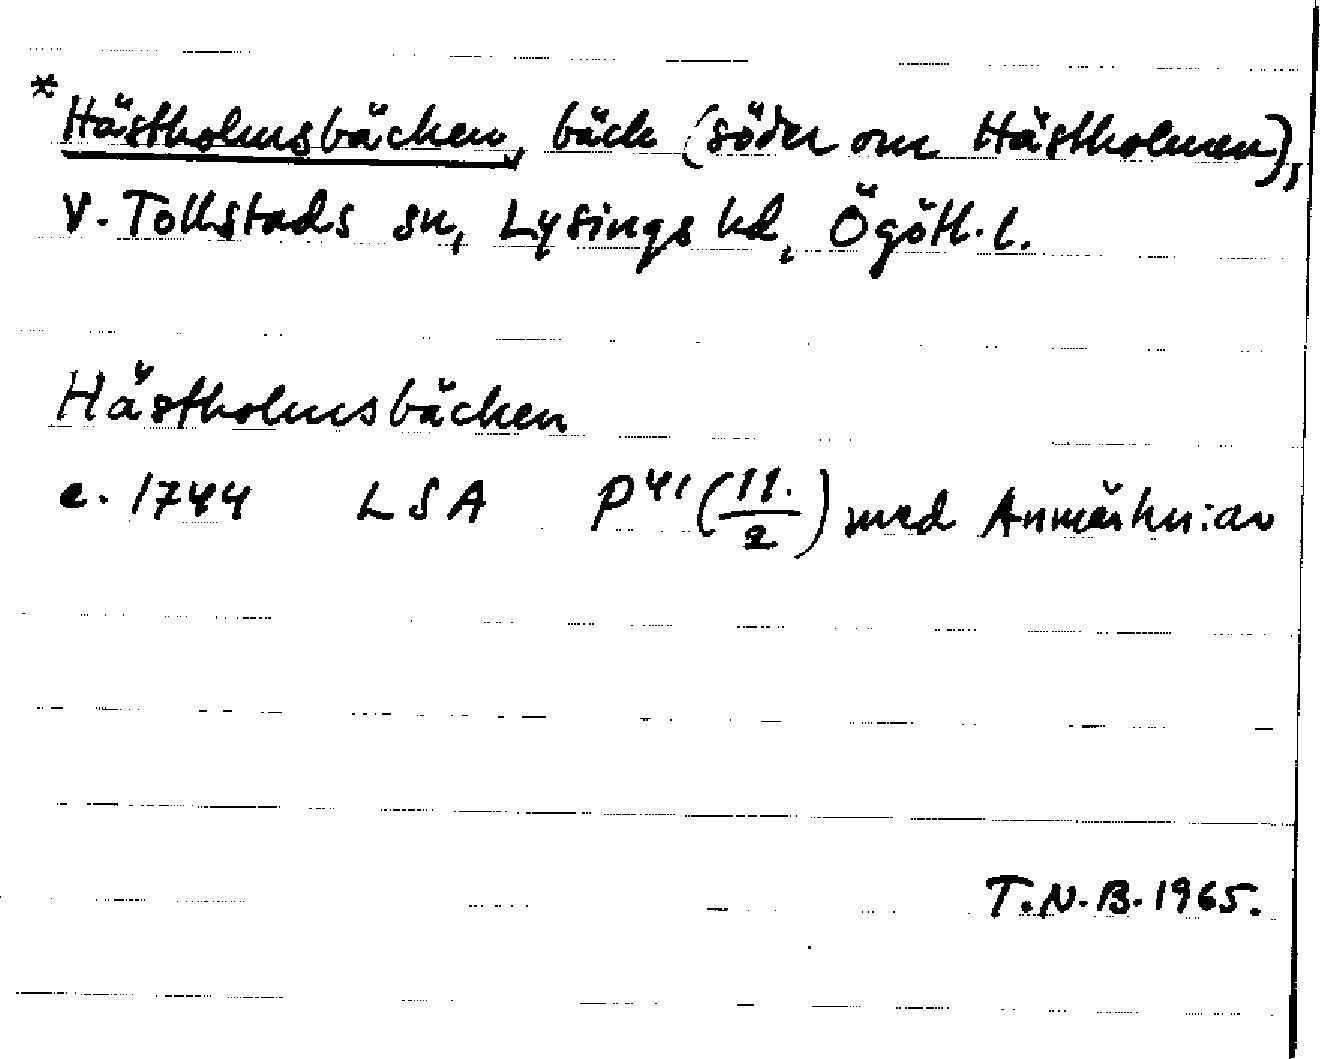 *Hästholmsbäcken, bäck (söder om Hästholmen),
V. Tollstads sn, Lysings hd, Ögötl. l.
Hästholmsbäcken
c. 1744 LSA P⁴¹(11./2) med Anmärkn:ar
T.N.B. 1965.